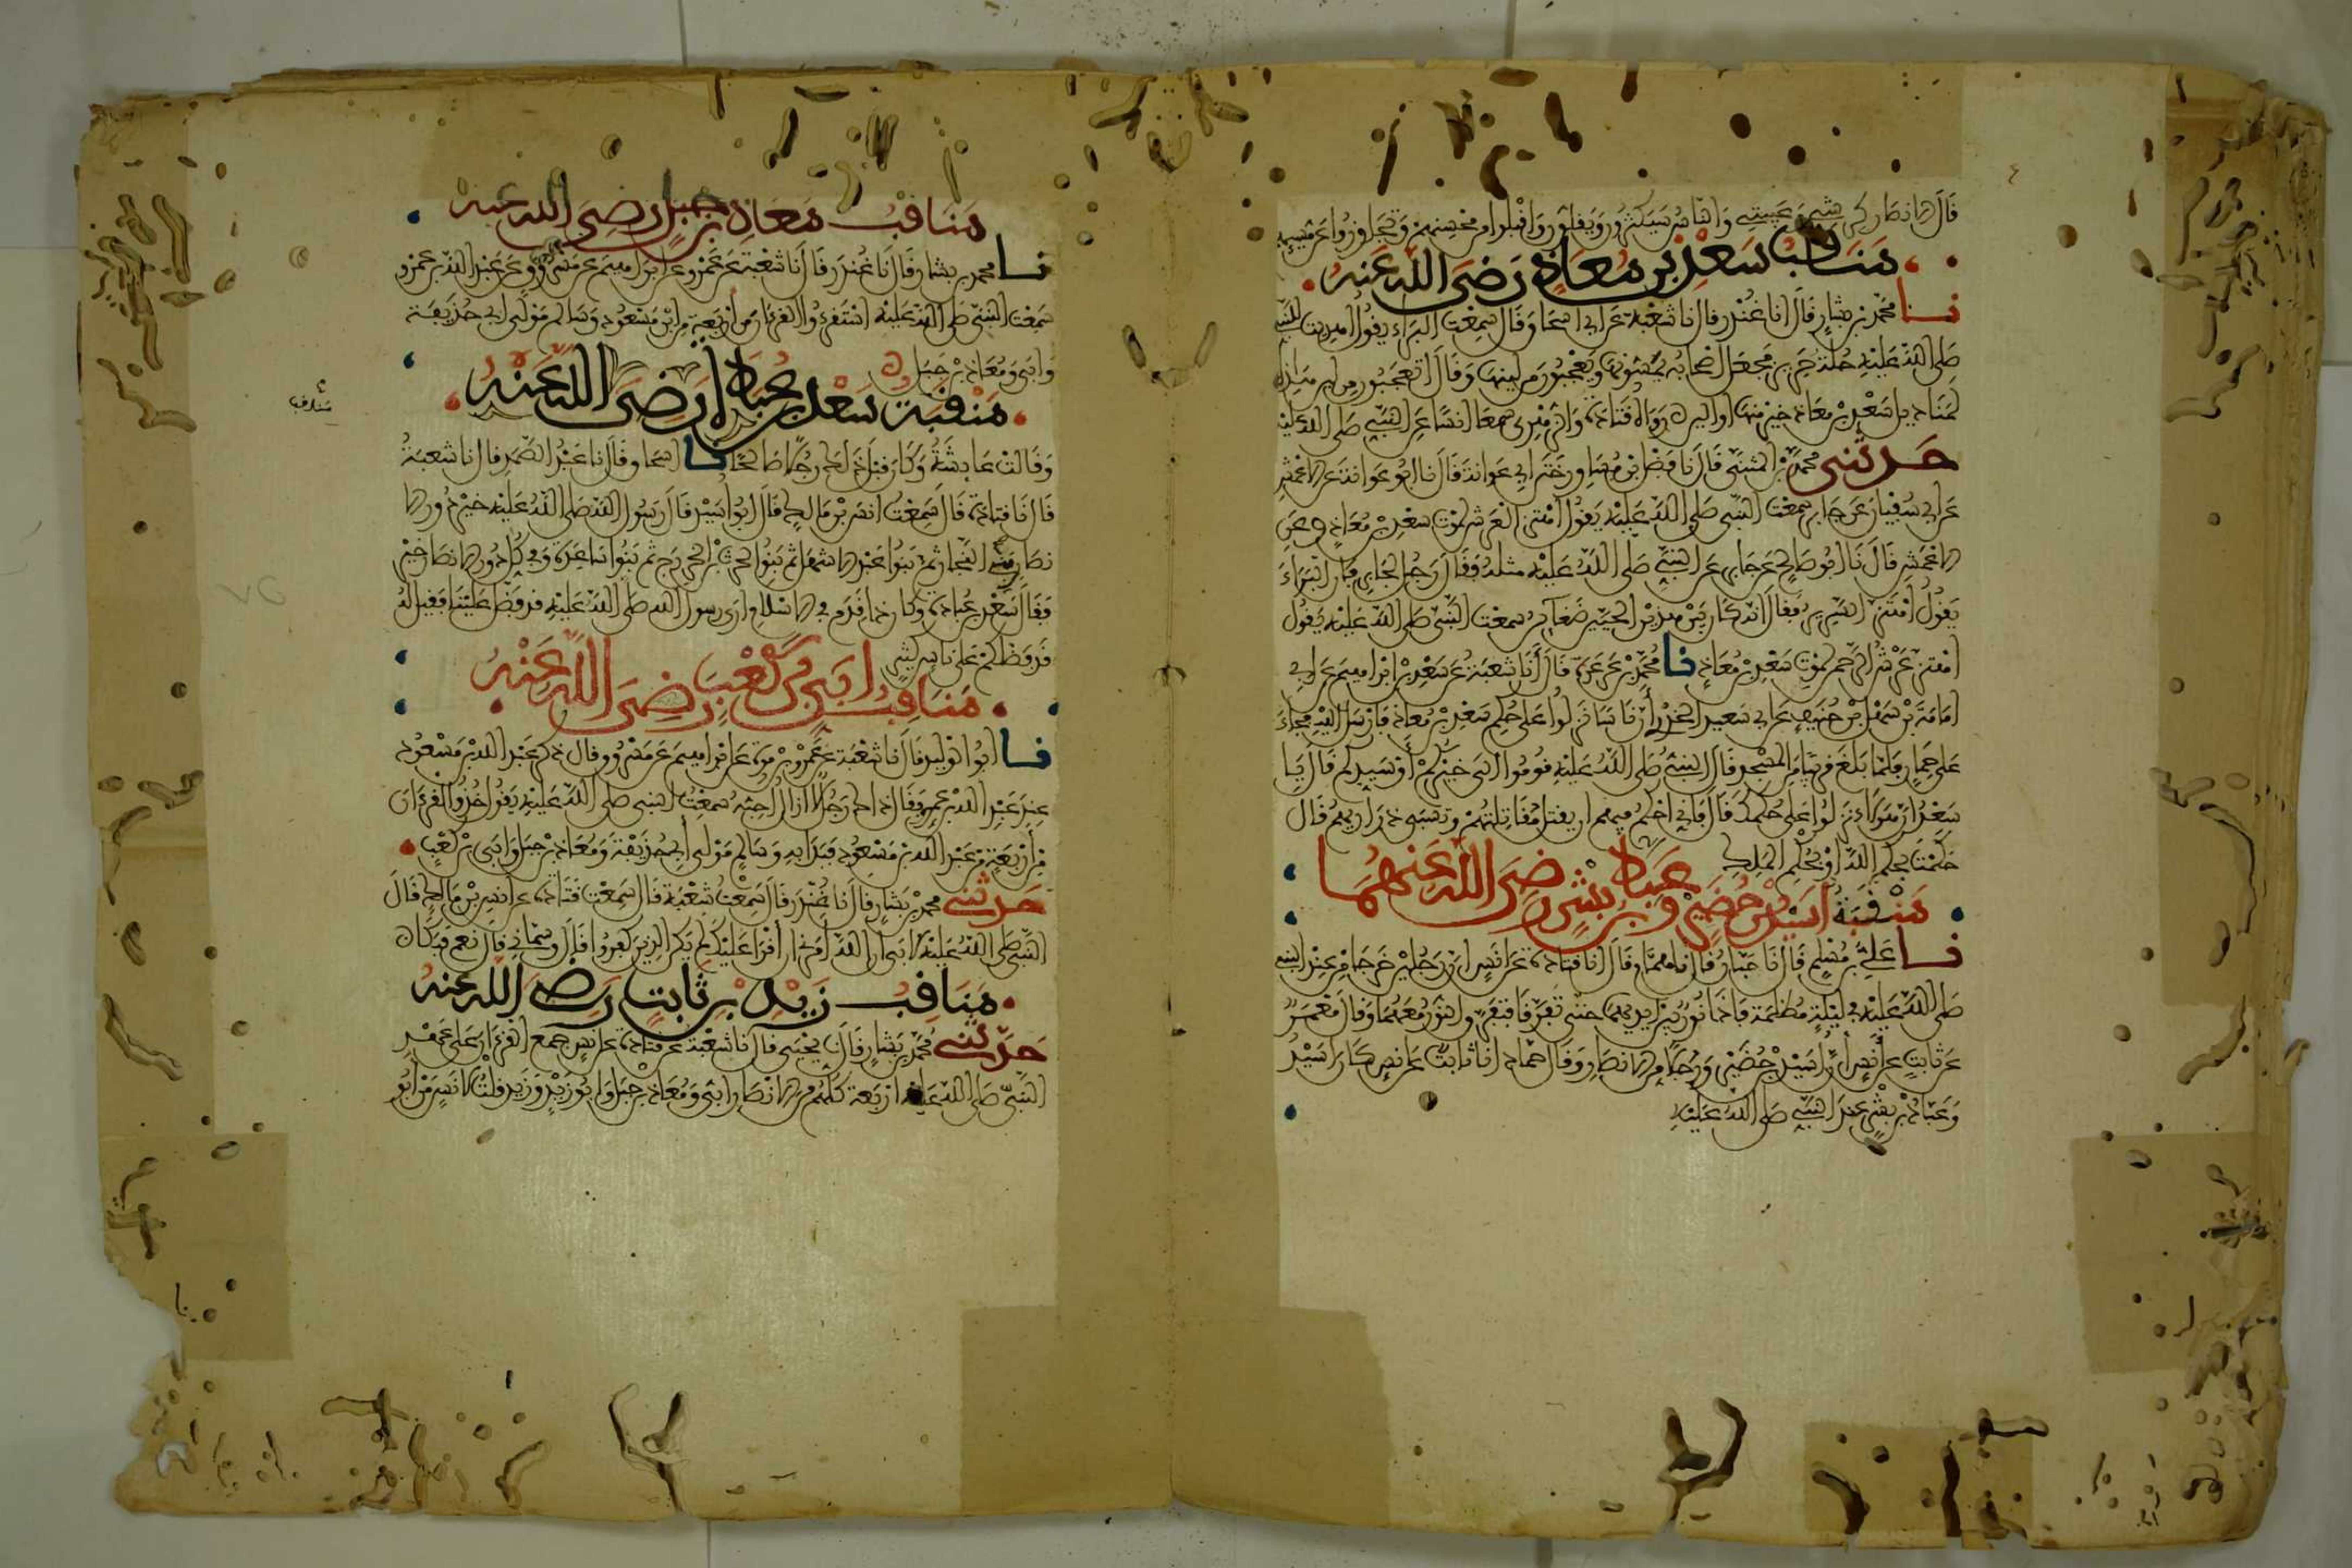 قال الانصار كرشي وعيبتي والناس سيكثرون ويقلون واقبلوا من محسنهم وتجاوزوا عن مسيهم
مناقب سعد بن معاذ رضي الله عنه
نا محمد بن بشار قال نا غندر قال نا شعبة عن ابي اسحاق قال سمعت البراء يقول اهديت للنبي
صلى الله عليه حلة حرير فجعل اصحابه يمسونها ويعجبون من لينها وقال اتعجبون من لين هذه
لمناديل سعد بن معاذ خير منها او الين رواه قتادة والزهري سمعا انسا عن النبي صلى الله عليه
حدثني محمد بن المثنى قال نا فضل بن مساور ختن ابي عوانة قال نا ابو عوانة عن الاعمش
عن ابي سفيان عن جابر سمعت النبي صلى الله عليه يقول اهتز العرش لموت سعد بن معاذ وعن
الاعمش قال نا ابو صالح عن جابر عن النبي صلى الله عليه مثله فقال رجل لجابر فان البراء
يقول اهتز السرير فقال انه كان بين هذين الحيين ضغاين سمعت النبي صلى الله عليه يقول
اهتز عرش الرحمن لموت سعد بن معاذ نا محمد بن عرعرة قال نا شعبة عن سعد بن ابراهيم عن ابي
امامة بن سهل بن حنيف عن ابي سعيد الخدري ان ناسا نزلوا على حكم سعد بن معاذ فارسل اليه فجاء
على حمار فلما بلغ قريبا من المسجد قال النبي صلى الله عليه قوموا الى خيركم او سيدكم قال يا
سعد ان هولاء نزلوا على حكمك قال فاني احكم فيهم ان يقتل مقاتلتهم وتسبى ذراريهم قال
حكمت بحكم الله او بحكم الملك
منقبة اسيد بن حضير وعباد بن بشر رضي الله عنهما
نا علي بن مسلم قال نا حبان قال نا همام قال انا قتادة عن انس ان رجلين خرجا من عند النبي
صلى الله عليه في ليلة مظلمة فاذا نور بين ايديهما حتى تفرقا فتفرق النور معهما وقال معمر
عن ثابت عن انس ان اسيد بن حضير ورجلا من الانصار وقال حماد انا ثابت عن انس كان اسيد
وعباد بن بشر عند النبي صلى الله عليه
مناقب معاذ بن جبل رضي الله عنه
نا محمد بن بشار قال نا غندر قال نا شعبة عن عمرو عن ابراهيم عن مسروق عن عبد الله بن عمرو
سمعت النبي صلى الله عليه استقرءوا القرءان من اربعة من ابن مسعود وسالم مولى ابي حذيفة
وابي ومعاذ بن جبل
منقبة سعد بن عبادة رضي الله عنه
وقالت عايشة وكان قبل ذلك رجلا صالحا نا اسحاق قال نا عبد الصمد قال نا شعبة
قال نا قتادة قال سمعت انس بن مالك قال ابو اسيد قال رسول الله صلى الله عليه خير دور الا
نصار بنو النجار ثم بنوا عبد الاشهل ثم بنوا الحرث بن الخزرج ثم بنوا ساعدة وفي كل دور الانصار خير
فقال سعد بن عبادة وكان ذا قدم في الاسلام ارى رسول الله صلى الله عليه قد فضل علينا فقيل له
قد فضلكم على ناس كثير
مناقب ابي بن كعب رضي الله عنه
نا ابوا الوليد قال نا شعبة عن عمرو بن مرة عن ابراهيم عن مسروق قال ذكر عبد الله بن مسعود
عند عبد الله بن عمرو فقال ذاك رجل لا ازال احبه سمعت النبي صلى الله عليه يقول خذوا القرءان
من اربعة من عبد الله بن مسعود فبدا به وسالم مولى ابي حذيفة ومعاذ بن جبل وابي بن كعب
حدثني محمد بن بشار قال نا غندر قال سمعت شعبة قال سمعت قتادة عن انس بن مالك قال
النبي صلى الله عليه لابي ان الله امرني ان اقرا عليك لم يكن الذين كفروا قال وسماني قال نعم فبكى
مناقب زيد بن ثابت رضي الله عنه
حدثني محمد بن بشار قال نا يحيى قال نا شعبة عن قتادة عن انس جمع القرءان على عهد
النبي صلى الله عليه اربعة كلهم من الانصار ابي ومعاذ بن جبل وابو زيد وزيد قلت لانس من ابو
مناقب